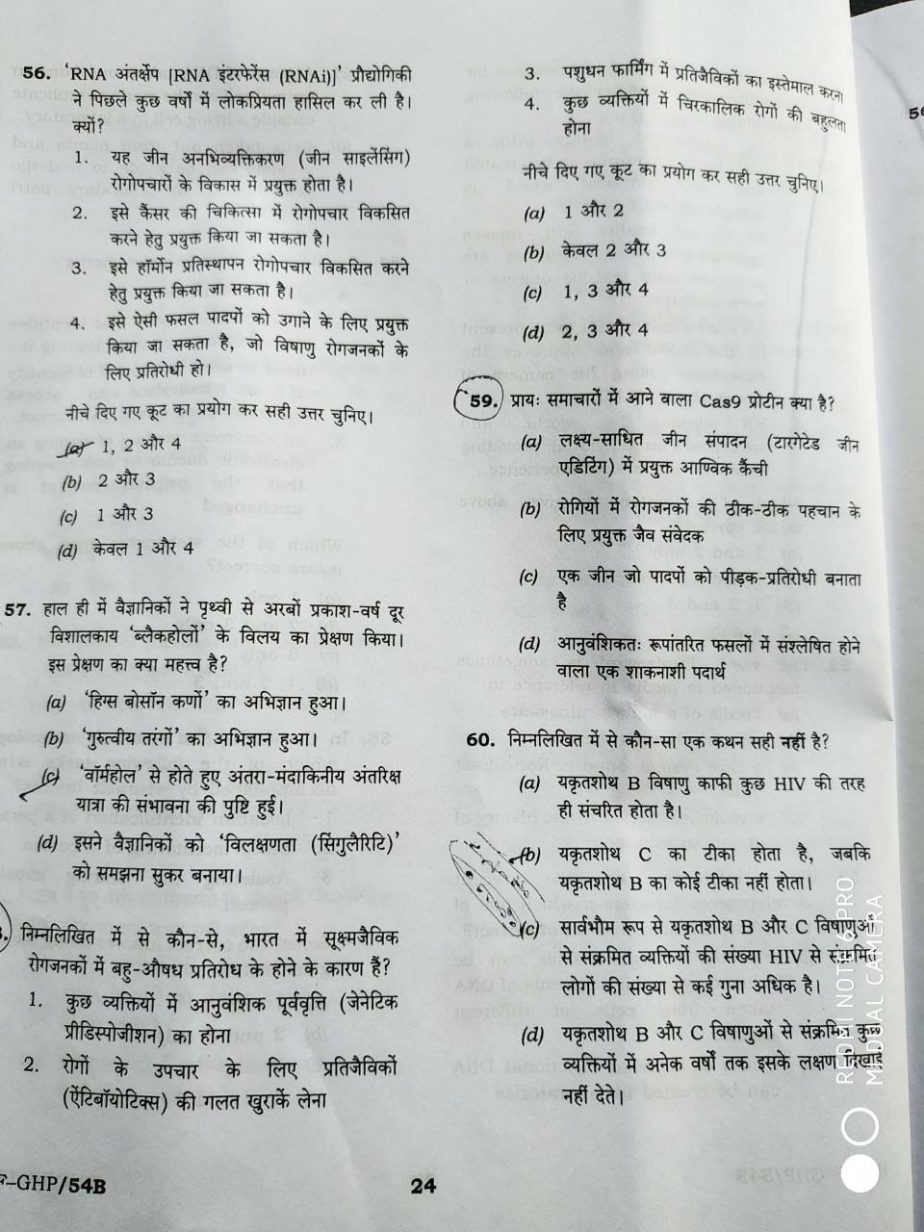 56. 'RNA अंतर्क्षेप [RNA इंटरफेरेंस (RNAi)]' प्रौद्योगिकी
ने पिछले कुछ वर्षों में लोकप्रियता हासिल कर ली है।
क्यों?
1. यह जीन अनभिव्यक्तिकरण (जीन साइलेंसिंग)
रोगोपचारों के विकास में प्रयुक्त होता है।
2. इसे कैंसर की चिकित्सा में रोगोपचार विकसित
करने हेतु प्रयुक्त किया जा सकता है।
3. इसे हॉर्मोन प्रतिस्थापन रोगोपचार विकसित करने
हेतु प्रयुक्त किया जा सकता है।
4. इसे ऐसी फसल पादपों को उगाने के लिए प्रयुक्त
किया जा सकता है, जो विषाणु रोगजनकों के
लिए प्रतिरोधी हो।
नीचे दिए गए कूट का प्रयोग कर सही उत्तर चुनिए।
(a) 1, 2 और 4
(b) 2 और 3
(c) 1 और 3
(d) केवल 1 और 4
57. हाल ही में वैज्ञानिकों ने पृथ्वी से अरबों प्रकाश-वर्ष दूर
विशालकाय 'ब्लैकहोलों' के विलय का प्रेक्षण किया।
इस प्रेक्षण का क्या महत्त्व है?
(a) 'हिग्स बोसॉन कणों' का अभिज्ञान हुआ।
(b) 'गुरुत्वीय तरंगों' का अभिज्ञान हुआ।
(c) 'वॉर्महोल' से होते हुए अंतरा-मंदाकिनीय अंतरिक्ष
यात्रा की संभावना की पुष्टि हुई।
(d) इसने वैज्ञानिकों को 'विलक्षणता (सिंगुलैरिटि)'
को समझना सुकर बनाया।
निम्नलिखित में से कौन-से, भारत में सूक्ष्मजैविक
रोगजनकों में बहु-औषध प्रतिरोध के होने के कारण हैं?
1. कुछ व्यक्तियों में आनुवंशिक पूर्ववृत्ति (जेनेटिक
प्रीडिस्पोजीशन) का होना
2. रोगों के उपचार के लिए प्रतिजैविकों
(ऐंटिबॉयोटिक्स) की गलत खुराकें लेना
F-GHP/54B
24
3. पशुधन फार्मिंग में प्रतिजैविकों का इस्तेमाल करना
4. कुछ व्यक्तियों में चिरकालिक रोगों की बहुलता
होना
नीचे दिए गए कूट का प्रयोग कर सही उत्तर चुनिए।
(a) 1 और 2
(b) केवल 2 और 3
(c) 1, 3 और 4
(d) 2, 3 और 4
59. प्रायः समाचारों में आने वाला Cas9 प्रोटीन क्या है?
(a) लक्ष्य-साधित जीन संपादन (टारगेटेड जीन
एडिटिंग) में प्रयुक्त आण्विक कैंची
(b) रोगियों में रोगजनकों की ठीक-ठीक पहचान के
लिए प्रयुक्त जैव संवेदक
(c) एक जीन जो पादपों को पीड़क-प्रतिरोधी बनाता
है
(d) आनुवंशिकतः रूपांतरित फसलों में संश्लेषित होने
वाला एक शाकनाशी पदार्थ
60. निम्नलिखित में से कौन-सा एक कथन सही नहीं है?
(a) यकृतशोथ B विषाणु काफी कुछ HIV की तरह
ही संचरित होता है।
(b) यकृतशोथ C का टीका होता है, जबकि
यकृतशोथ B का कोई टीका नहीं होता।
(c) सार्वभौम रूप से यकृतशोथ B और C विषाणुओं
से संक्रमित व्यक्तियों की संख्या HIV से संक्रमित
लोगों की संख्या से कई गुना अधिक है।
(d) यकृतशोथ B और C विषाणुओं से संक्रमित कुछ
व्यक्तियों में अनेक वर्षों तक इसके लक्षण दिखाई
नहीं देते।
REDMI NOTE 6 PRO
MI DUAL CAMERA